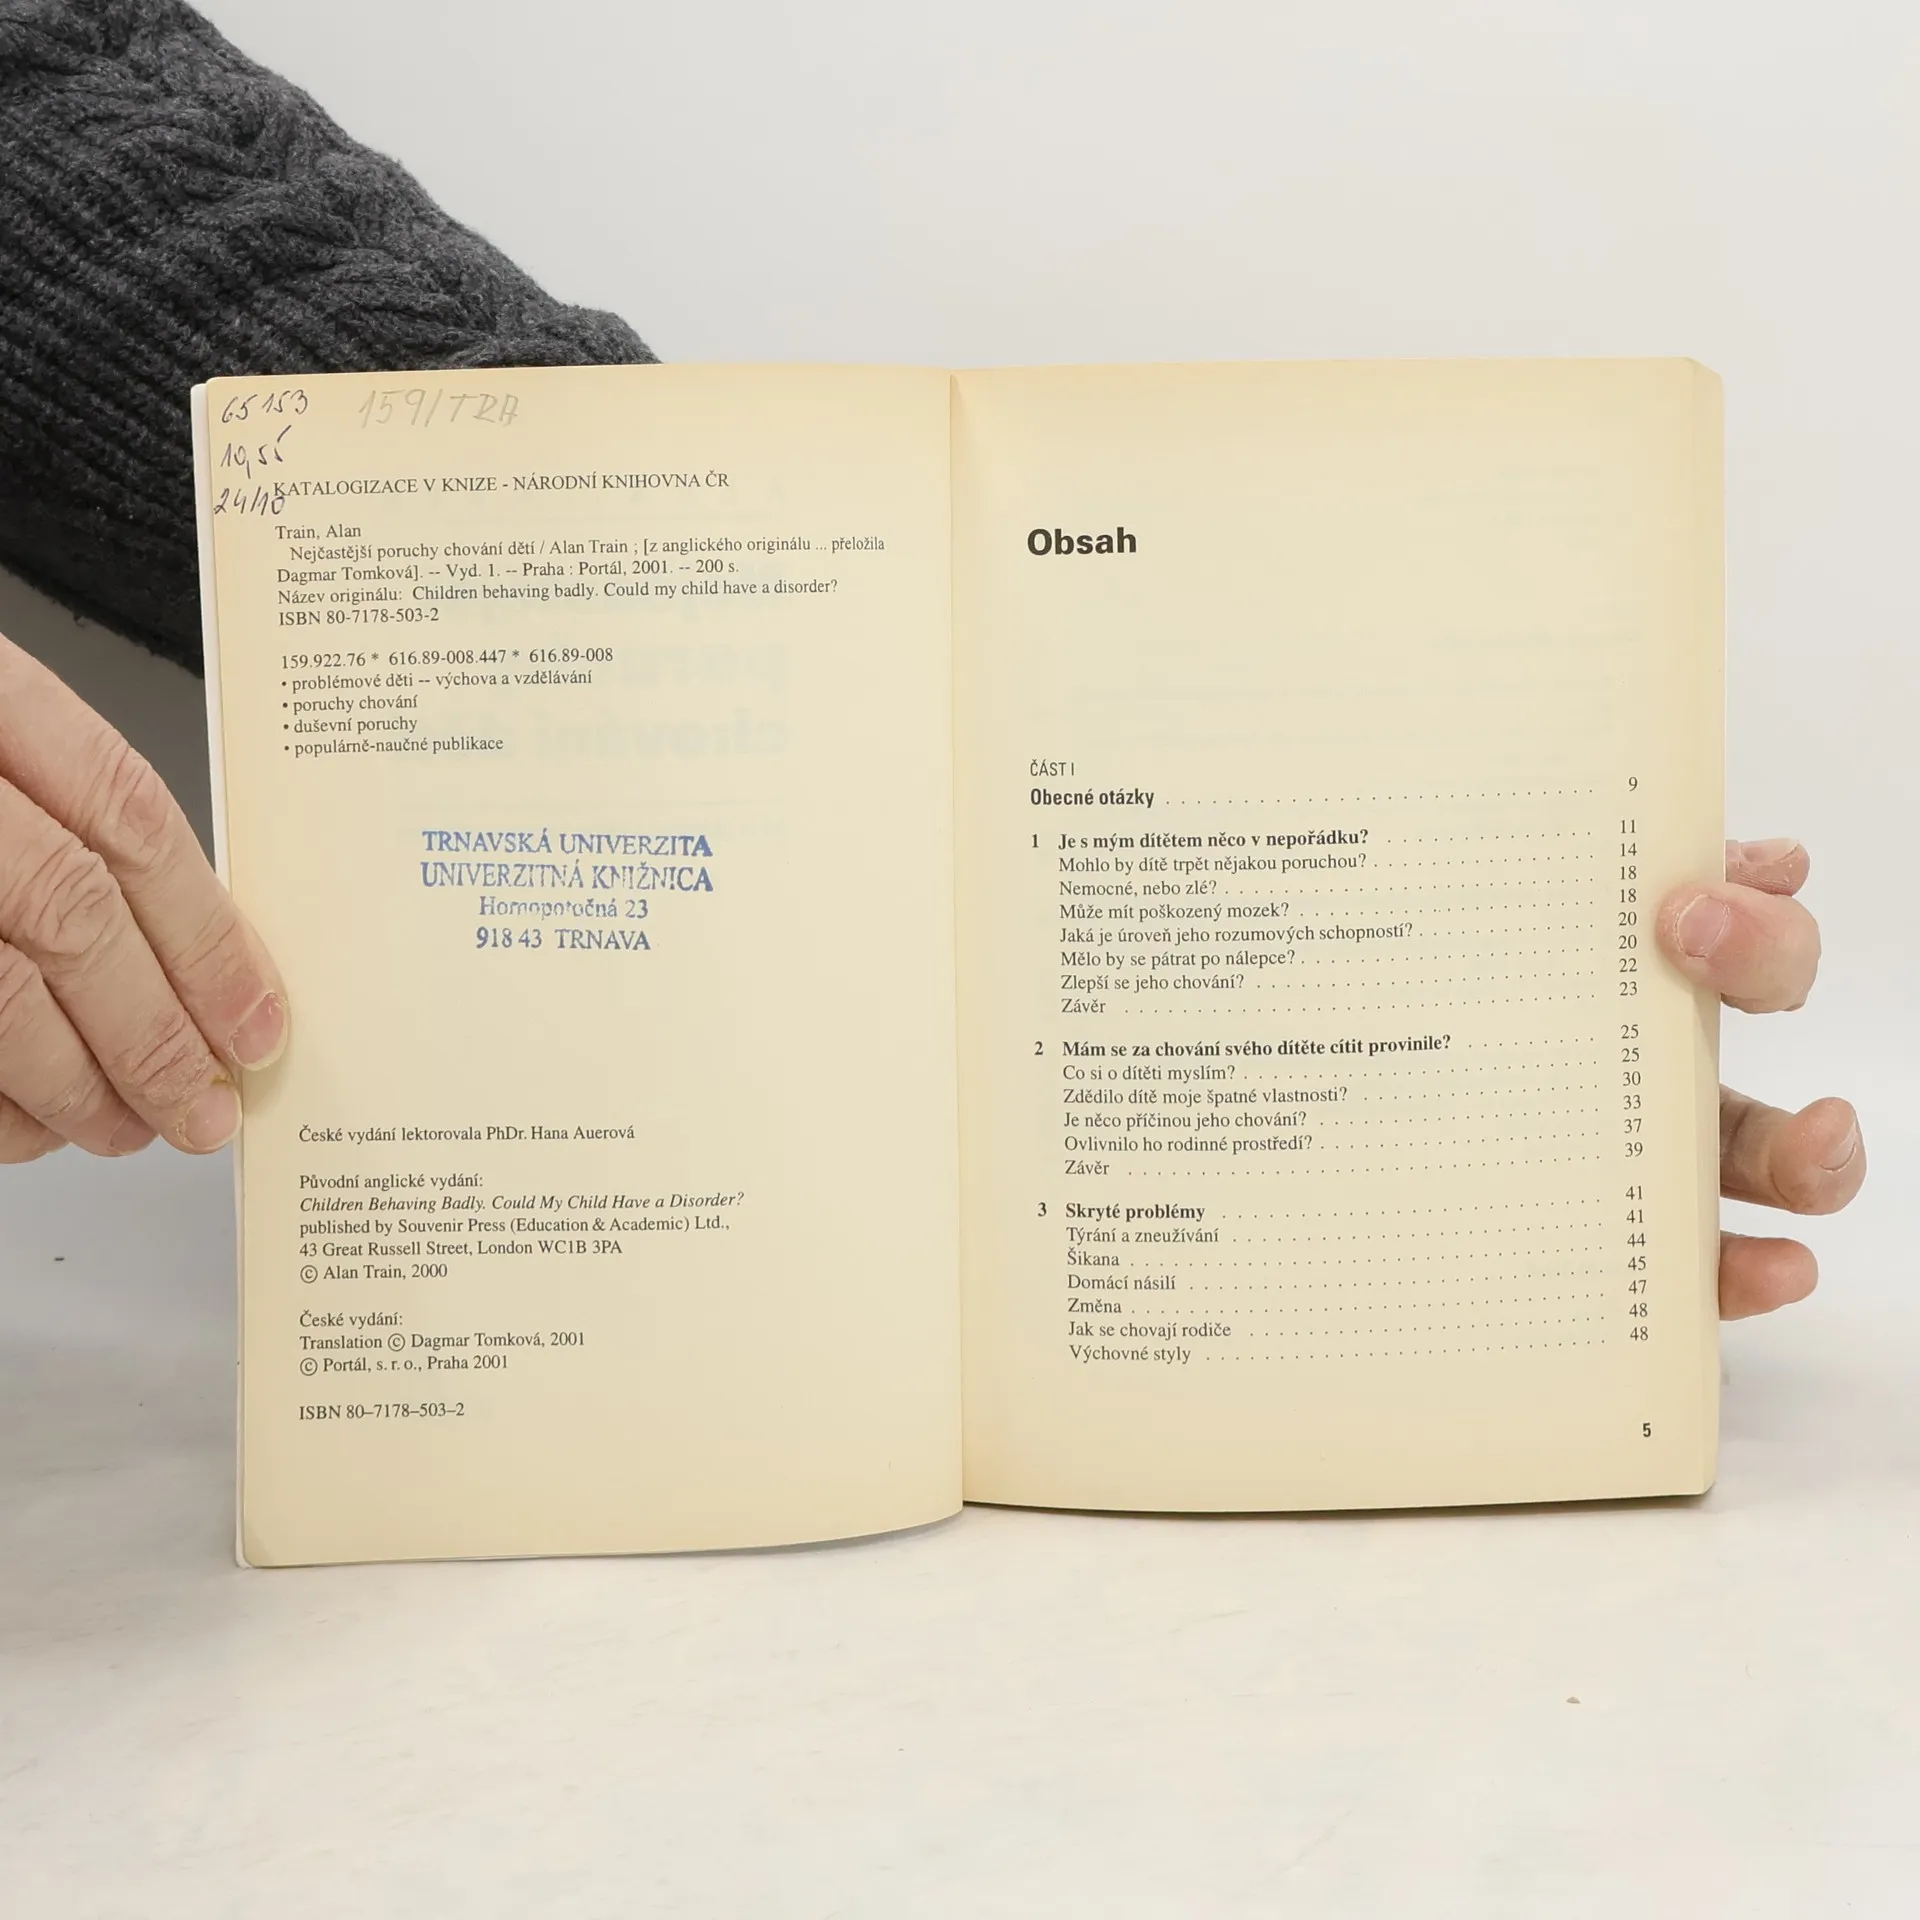 65 153 159/TRA
10,55
24/10
KATALOGIZACE V KNIZE - NÁRODNÍ KNIHOVNA ČR
Train, Alan
Nejčastější poruchy chování dětí / Alan Train ; [z anglického originálu ... přeložila
Dagmar Tomková]. -- Vyd. 1. -- Praha : Portál, 2001. -- 200 s.
Název originálu: Children behaving badly. Could my child have a disorder?
ISBN 80-7178-503-2
159.922.76 * 616.89-008.447 * 616.89-008
• problémové děti -- výchova a vzdělávání
• poruchy chování
• duševní poruchy
• populárně-naučné publikace
TRNAVSKÁ UNIVERZITA
UNIVERZITNÁ KNIŽNICA
Hornopotočná 23
918 43 TRNAVA
České vydání lektorovala PhDr. Hana Auerová
Původní anglické vydání:
Children Behaving Badly. Could My Child Have a Disorder?
published by Souvenir Press (Education & Academic) Ltd.,
43 Great Russell Street, London WC1B 3PA
© Alan Train, 2000
České vydání:
Translation © Dagmar Tomková, 2001
© Portál, s. r. o., Praha 2001
ISBN 80–7178–503–2
Obsah
ČÁST I
Obecné otázky . . . . . . . . . . 9
1 Je s mým dítětem něco v nepořádku? . . . . . . . . . . 11
Mohlo by dítě trpět nějakou poruchou? . . . . . . . . . . 14
Nemocné, nebo zlé? . . . . . . . . . . 18
Může mít poškozený mozek? . . . . . . . . . . 18
Jaká je úroveň jeho rozumových schopností? . . . . . . . . . . 20
Mělo by se pátrat po nálepce? . . . . . . . . . . 20
Zlepší se jeho chování? . . . . . . . . . . 22
Závěr . . . . . . . . . . 23
2 Mám se za chování svého dítěte cítit provinile? . . . . . . . . . . 25
Co si o dítěti myslím? . . . . . . . . . . 25
Zdědilo dítě moje špatné vlastnosti? . . . . . . . . . . 30
Je něco příčinou jeho chování? . . . . . . . . . . 33
Ovlivnilo ho rodinné prostředí? . . . . . . . . . . 37
Závěr . . . . . . . . . . 39
3 Skryté problémy . . . . . . . . . . 41
Týrání a zneužívání . . . . . . . . . . 41
Šikana . . . . . . . . . . 44
Domácí násilí . . . . . . . . . . 45
Změna . . . . . . . . . . 47
Jak se chovají rodiče . . . . . . . . . . 48
Výchovné styly . . . . . . . . . . 48
5